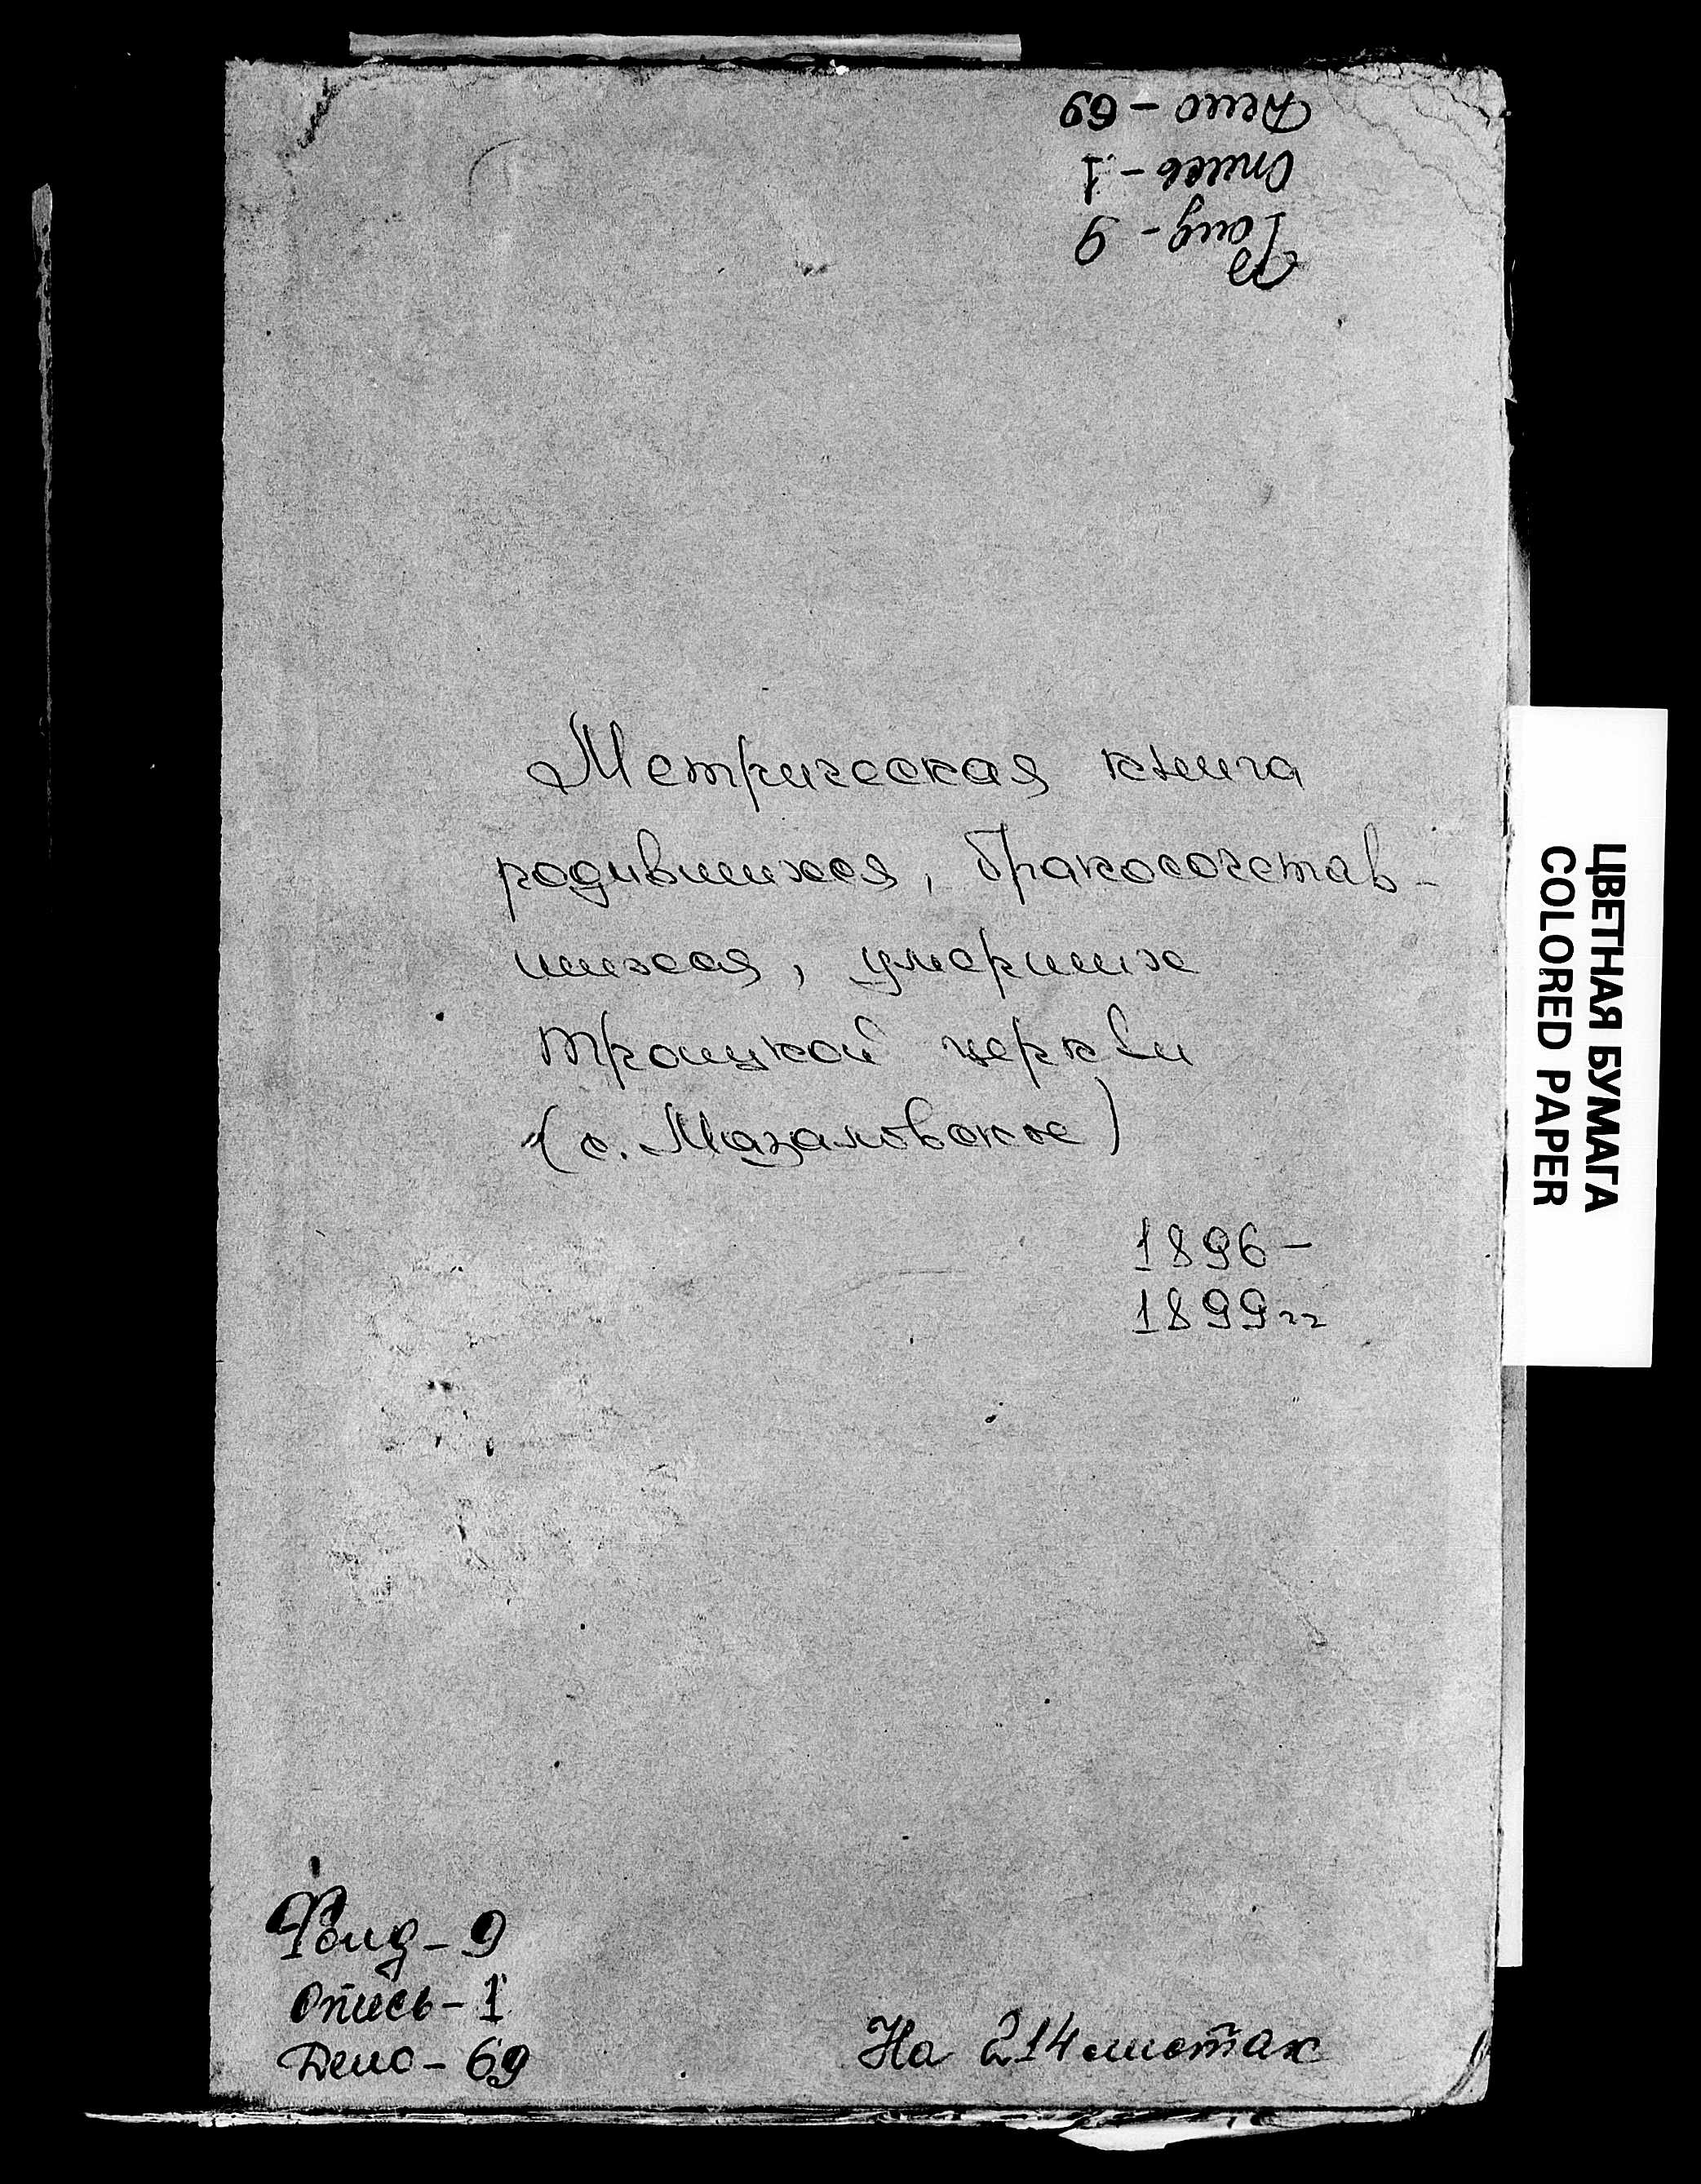 Фонд - 9
Опись - 1
Дело - 69
Метрическая книга
родившихся, бракосочетав-
шихся, умерших
Троицкой церкви
(с. Мазаловское)
1896 -
1899 гг
Фонд - 9
Опись - 1
Дело - 69
На 214 листах
ЦВЕТНАЯ БУМАГА
COLORED PAPER